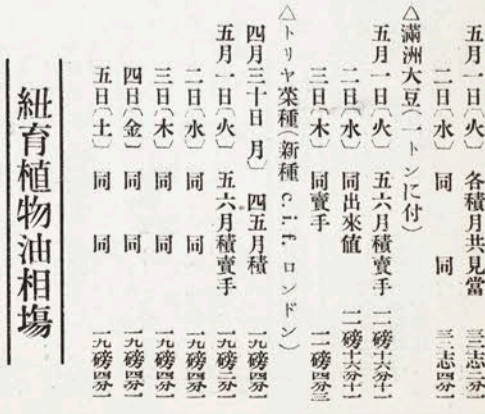 五月一日(火)　各積月共見當　三志二分一
二日(水)　同　同　三志四分一
△滿洲大豆(一トンに付)
五月一日(火)　五六月積賣手　一一磅十六分十一
二日(水)　同出來値　一一磅十六分十一
三日(木)　同賣手　一一磅四分三
△トリヤ菜種(新種 c.i.f. ロンドン)
四月三十日(月)　四五月積　一九磅四分一
五月一日(火)　五六月積賣手　一九磅二分一
二日(水)　同　同　一九磅四分一
三日(木)　同　同　一九磅四分一
四日(金)　同　同　一九磅四分一
五日(土)　同　同　一九磅四分一
紐育植物油相場